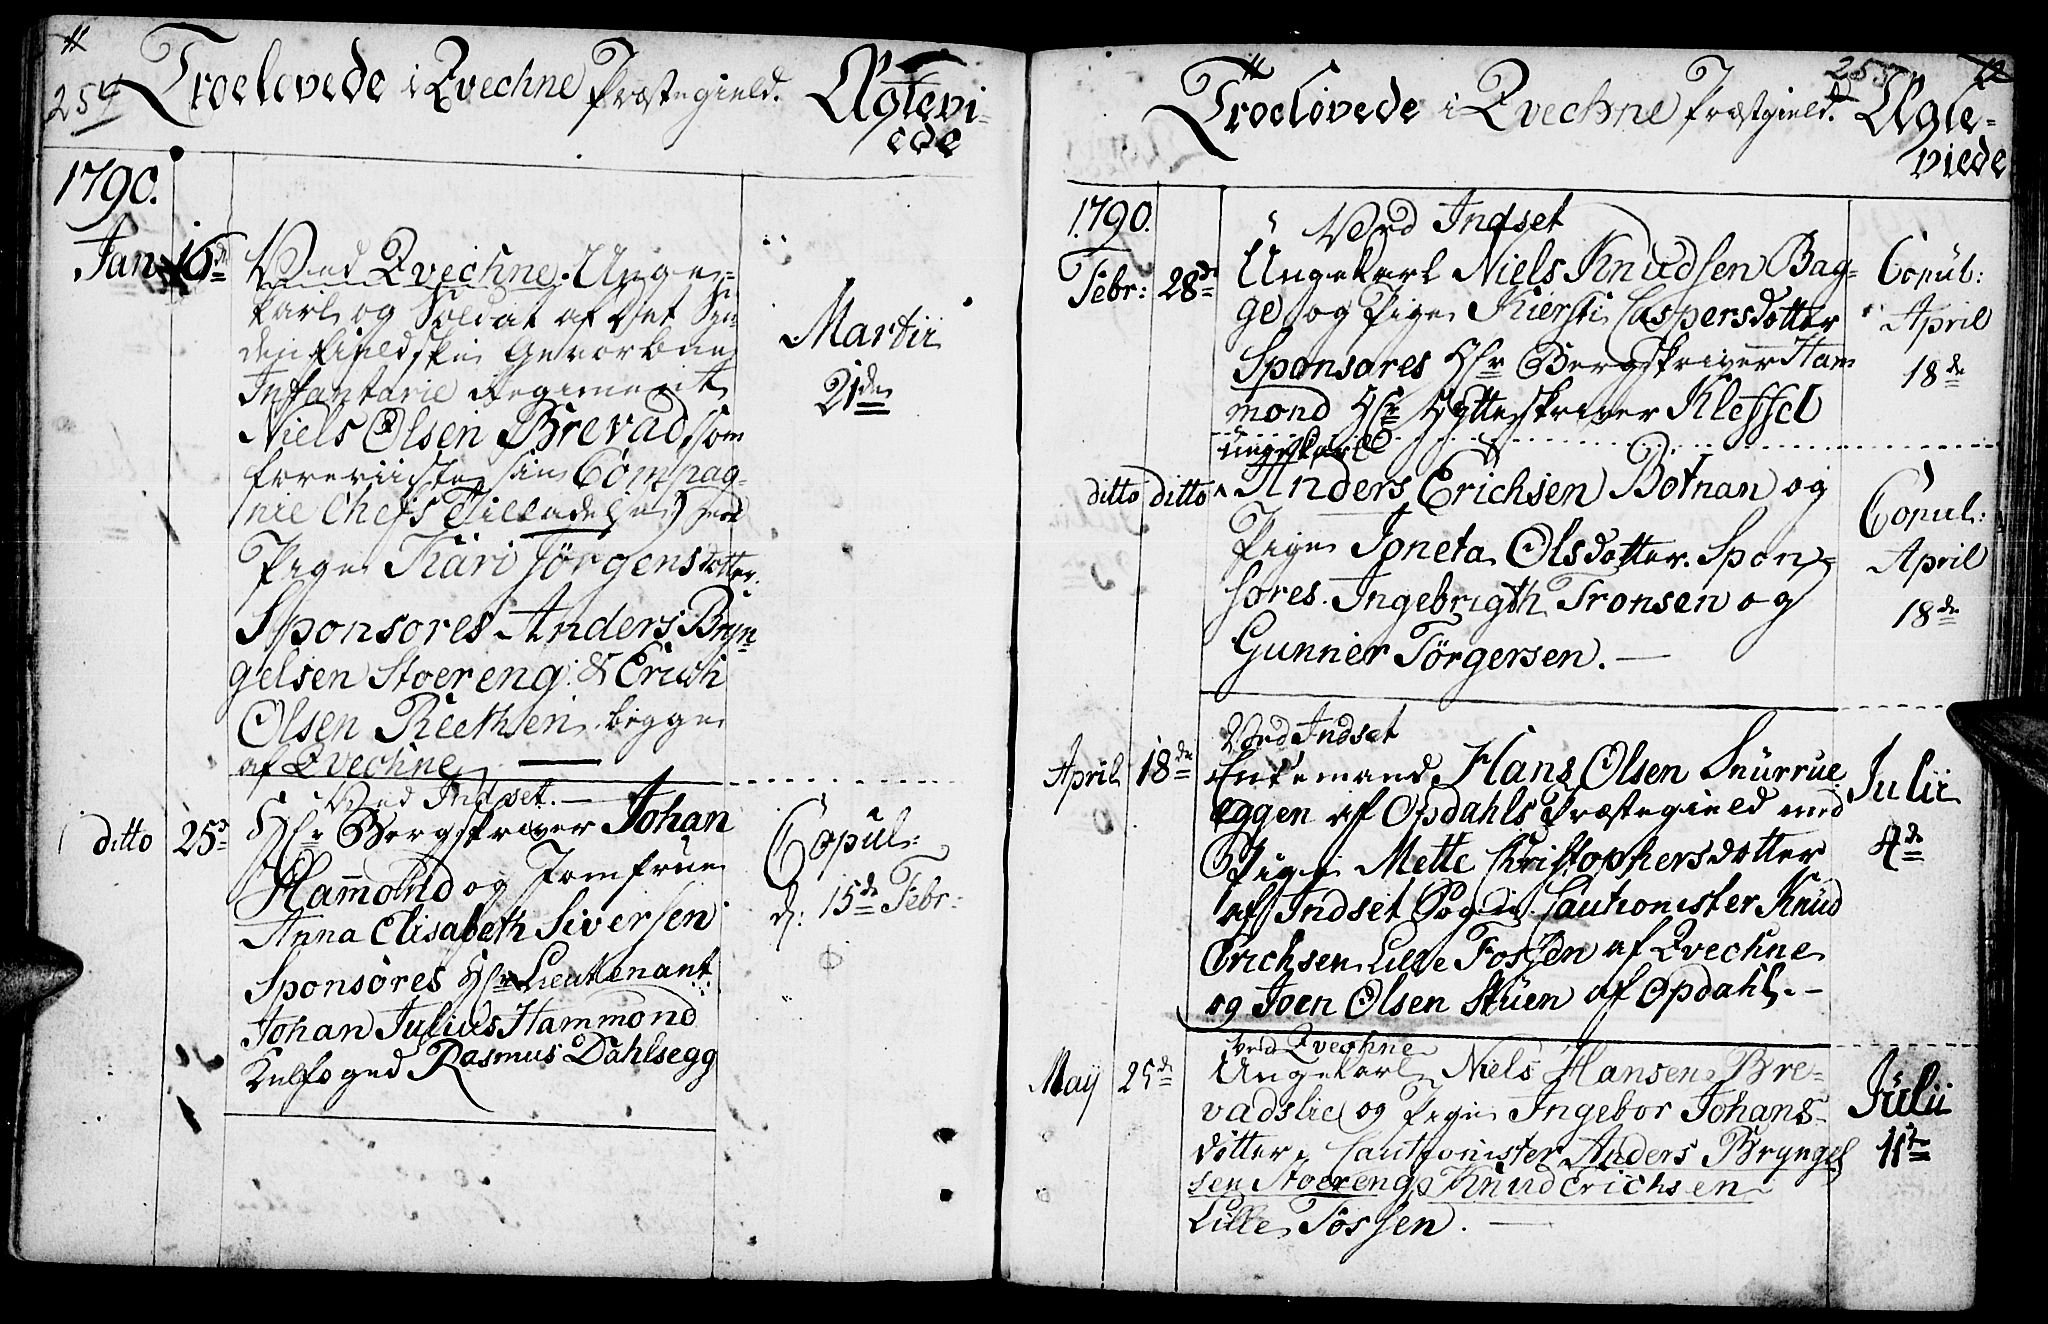 254
Troelovede i Qvechne Præstegield. Ægtevi-
ede
1790.
Jan 16de Ved Qvechne. Unge-
karl og Soldat af det Sön-
denfieldske Gevorbne
Infantarie Regiment
Niels Olsen Brevad, som
foreviiste sin Compag-
nie Chefs Tilladelse) med
Pige Kari Jörgensdotter.
Sponsores Anders Bryn-
gelsen Stoereng: & Erich
Olsen Reethsen begge
af Qvechne
Martii
21de
Ved Indset.
ditto 25de Hr Bergskriver Johan
Hammond og Jomfrue
Anna Elisabeth Siversen
Sponsores Hr Lieutenant
Johan Julius Hammond
Rasmus Dahlsegg
Copul:
d: 15de Febr:
255
Troelovede i Qvechne Præstgield. Ægte-
viede
1790.
Ved Indset
Febr: 28de Ungekarl Niels Knudsen Bag-
ge og Pige Kiersti Caspersdotter
Sponsores Hr Bergskriver Ham
mond Hr Hytteskriver Kleffel
Copul:
April
18de
Ungekarl
ditto ditto Anders Erichsen Botnan og
Pige Joneta Olsdotter. Spon-
sores. Ingebrigth Tronsen og
Gunner Törgersen.
Copul:
April
18de
Ved Indset
April 18de Enkemand Hans Olsen Snurrue
eggen af Opdahls Præstegield med
Pige Mette Christophersdotter
af Indset Sogn Cautionister Knud
Erichsen Lille Fossen af Qvechne
og Joen Olsen Stuen af Opdahl.
Julii
4de
Ved Qvechne
Maij 25de Ungekarl Niels Hansen Bre-
vadslie og Pige Ingebor Johans-
dotter, Cautionister Anders Bryngel
sen Stoereng & Knud Erichsen
Lille Fossen.
Julii
11te